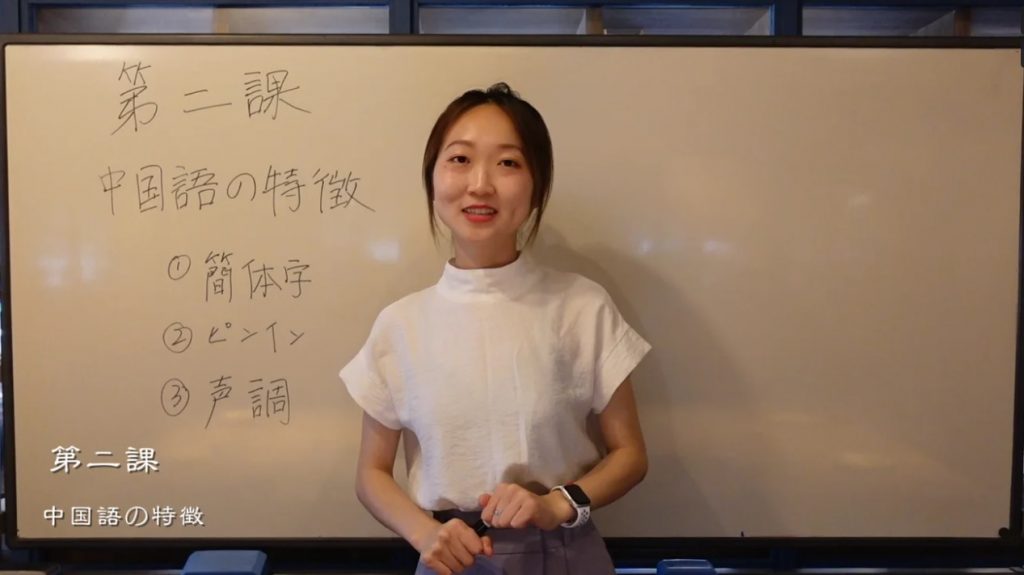 第二課
中国語の特徴
① 簡体字
② ピンイン
③ 声調
第二課
中国語の特徴